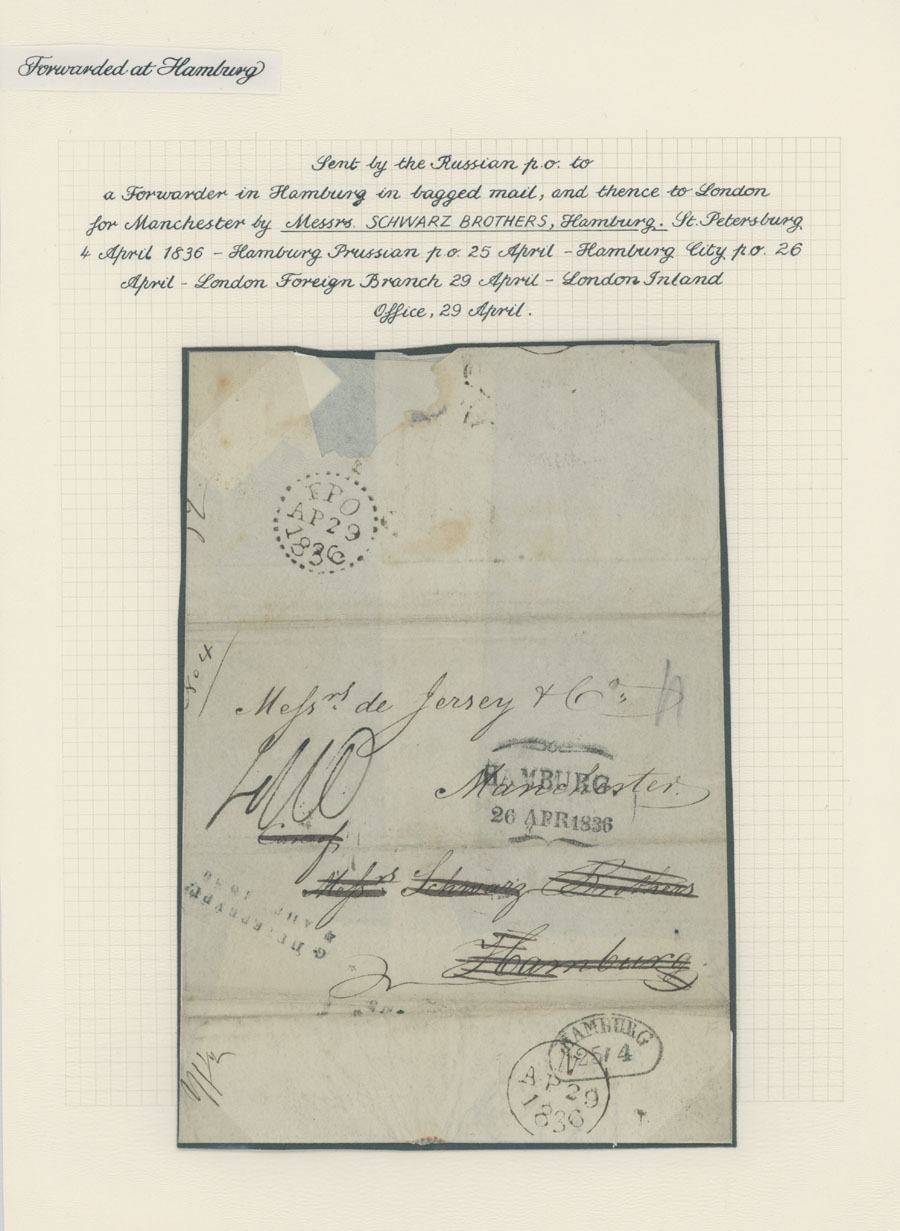 Forwarded at Hamburg
Sent by the Russian p.o. to
a Forwarder in Hamburg in bagged mail, and thence to London
for Manchester by Messrs. SCHWARZ BROTHERS, Hamburg. St. Petersburg
4 April 1836 – Hamburg Prussian p.o. 25 April – Hamburg City p.o. 26
April – London Foreign Branch 29 April – London Inland
Office, 29 April.
FPO
AP 29
1836
No 4
Messrs. de Jersey & Co.
HAMBURG
Manchester.
26 APR 1836
Messrs Schwarz Brothers
Hamburg
HAMBURG
25/4
N
AP 29
1836